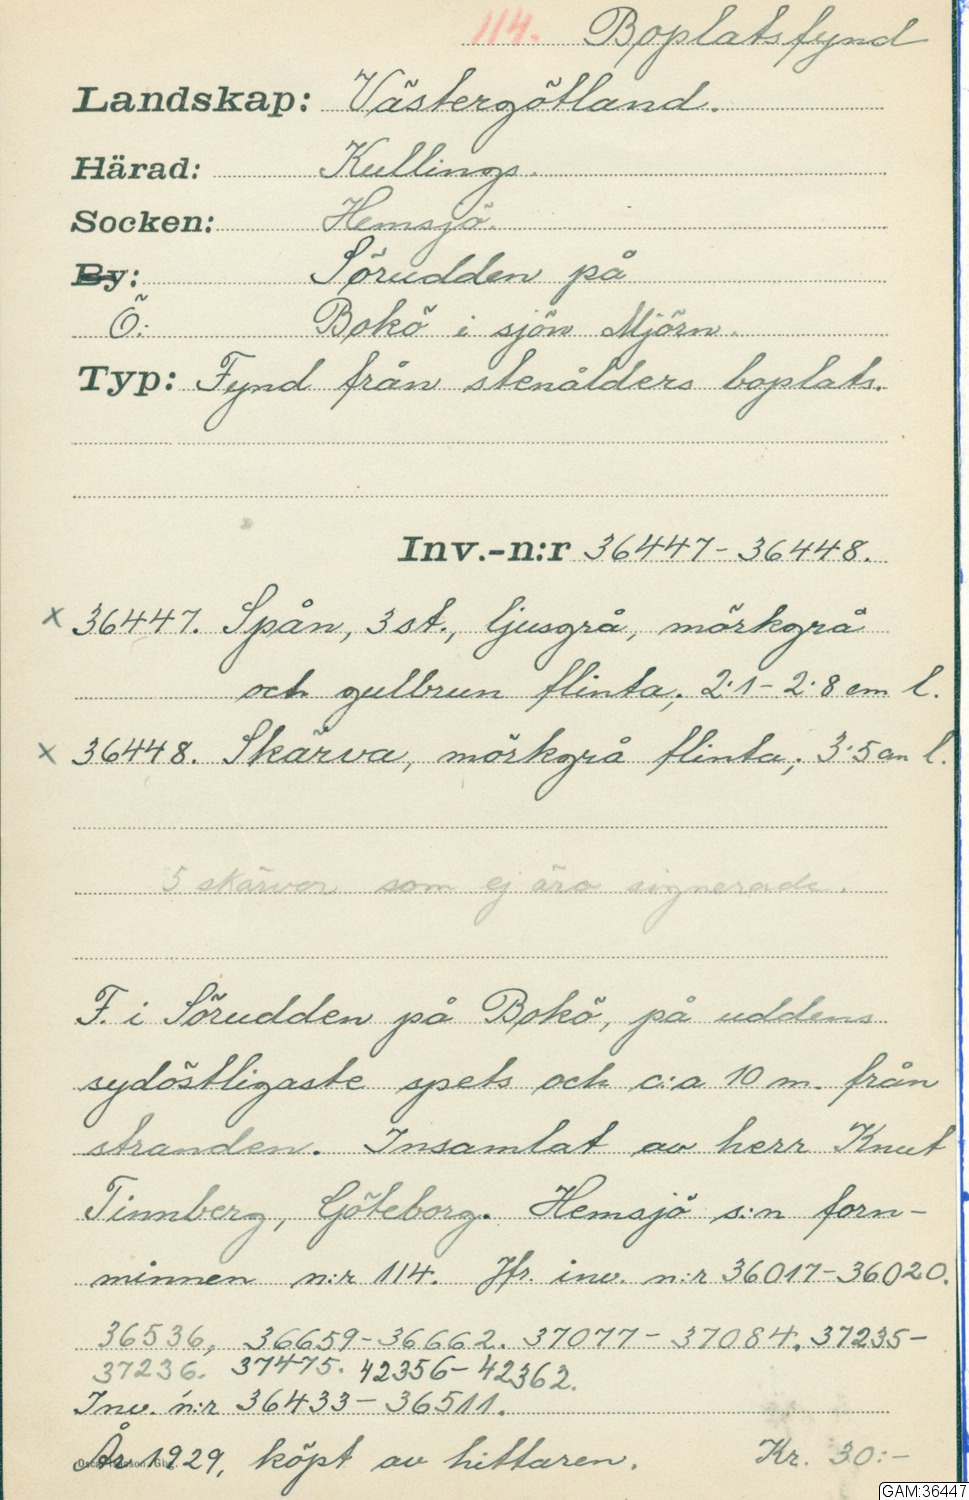 114. Boplatsfynd
Landskap: Västergötland.
Härad: Kullings.
Socken: Hemsjö.
By: Sörudden på
Ö: Bokö i sjön Mjörn.
Typ: Fynd från stenålders boplats.
Inv.-n:r 36447-36448.
x 36447. Spån, 3 st., ljusgrå, mörkgrå
och gulbrun flinta; 2·1-2·8 cm l.
x 36448. Skärva, mörkgrå flinta; 3·5 cm l.
5 skärvor som ej äro signerade.
F. i Sörudden på Bokö, på uddens
sydöstligaste spets och c:a 10 m. från
stranden. Insamlat av herr Knut
Tinnberg, Göteborg. Hemsjö s:n forn-
minnen n:r 114. Jfr. inv. n:r 36017-36020.
36536, 36659-36662. 37077-37084. 37235-
37236. 37475. 42356-42362.
Inv. n:r 36433-36511.
År 1929, köpt av hittaren. Kr. 30:-
GAM:36447